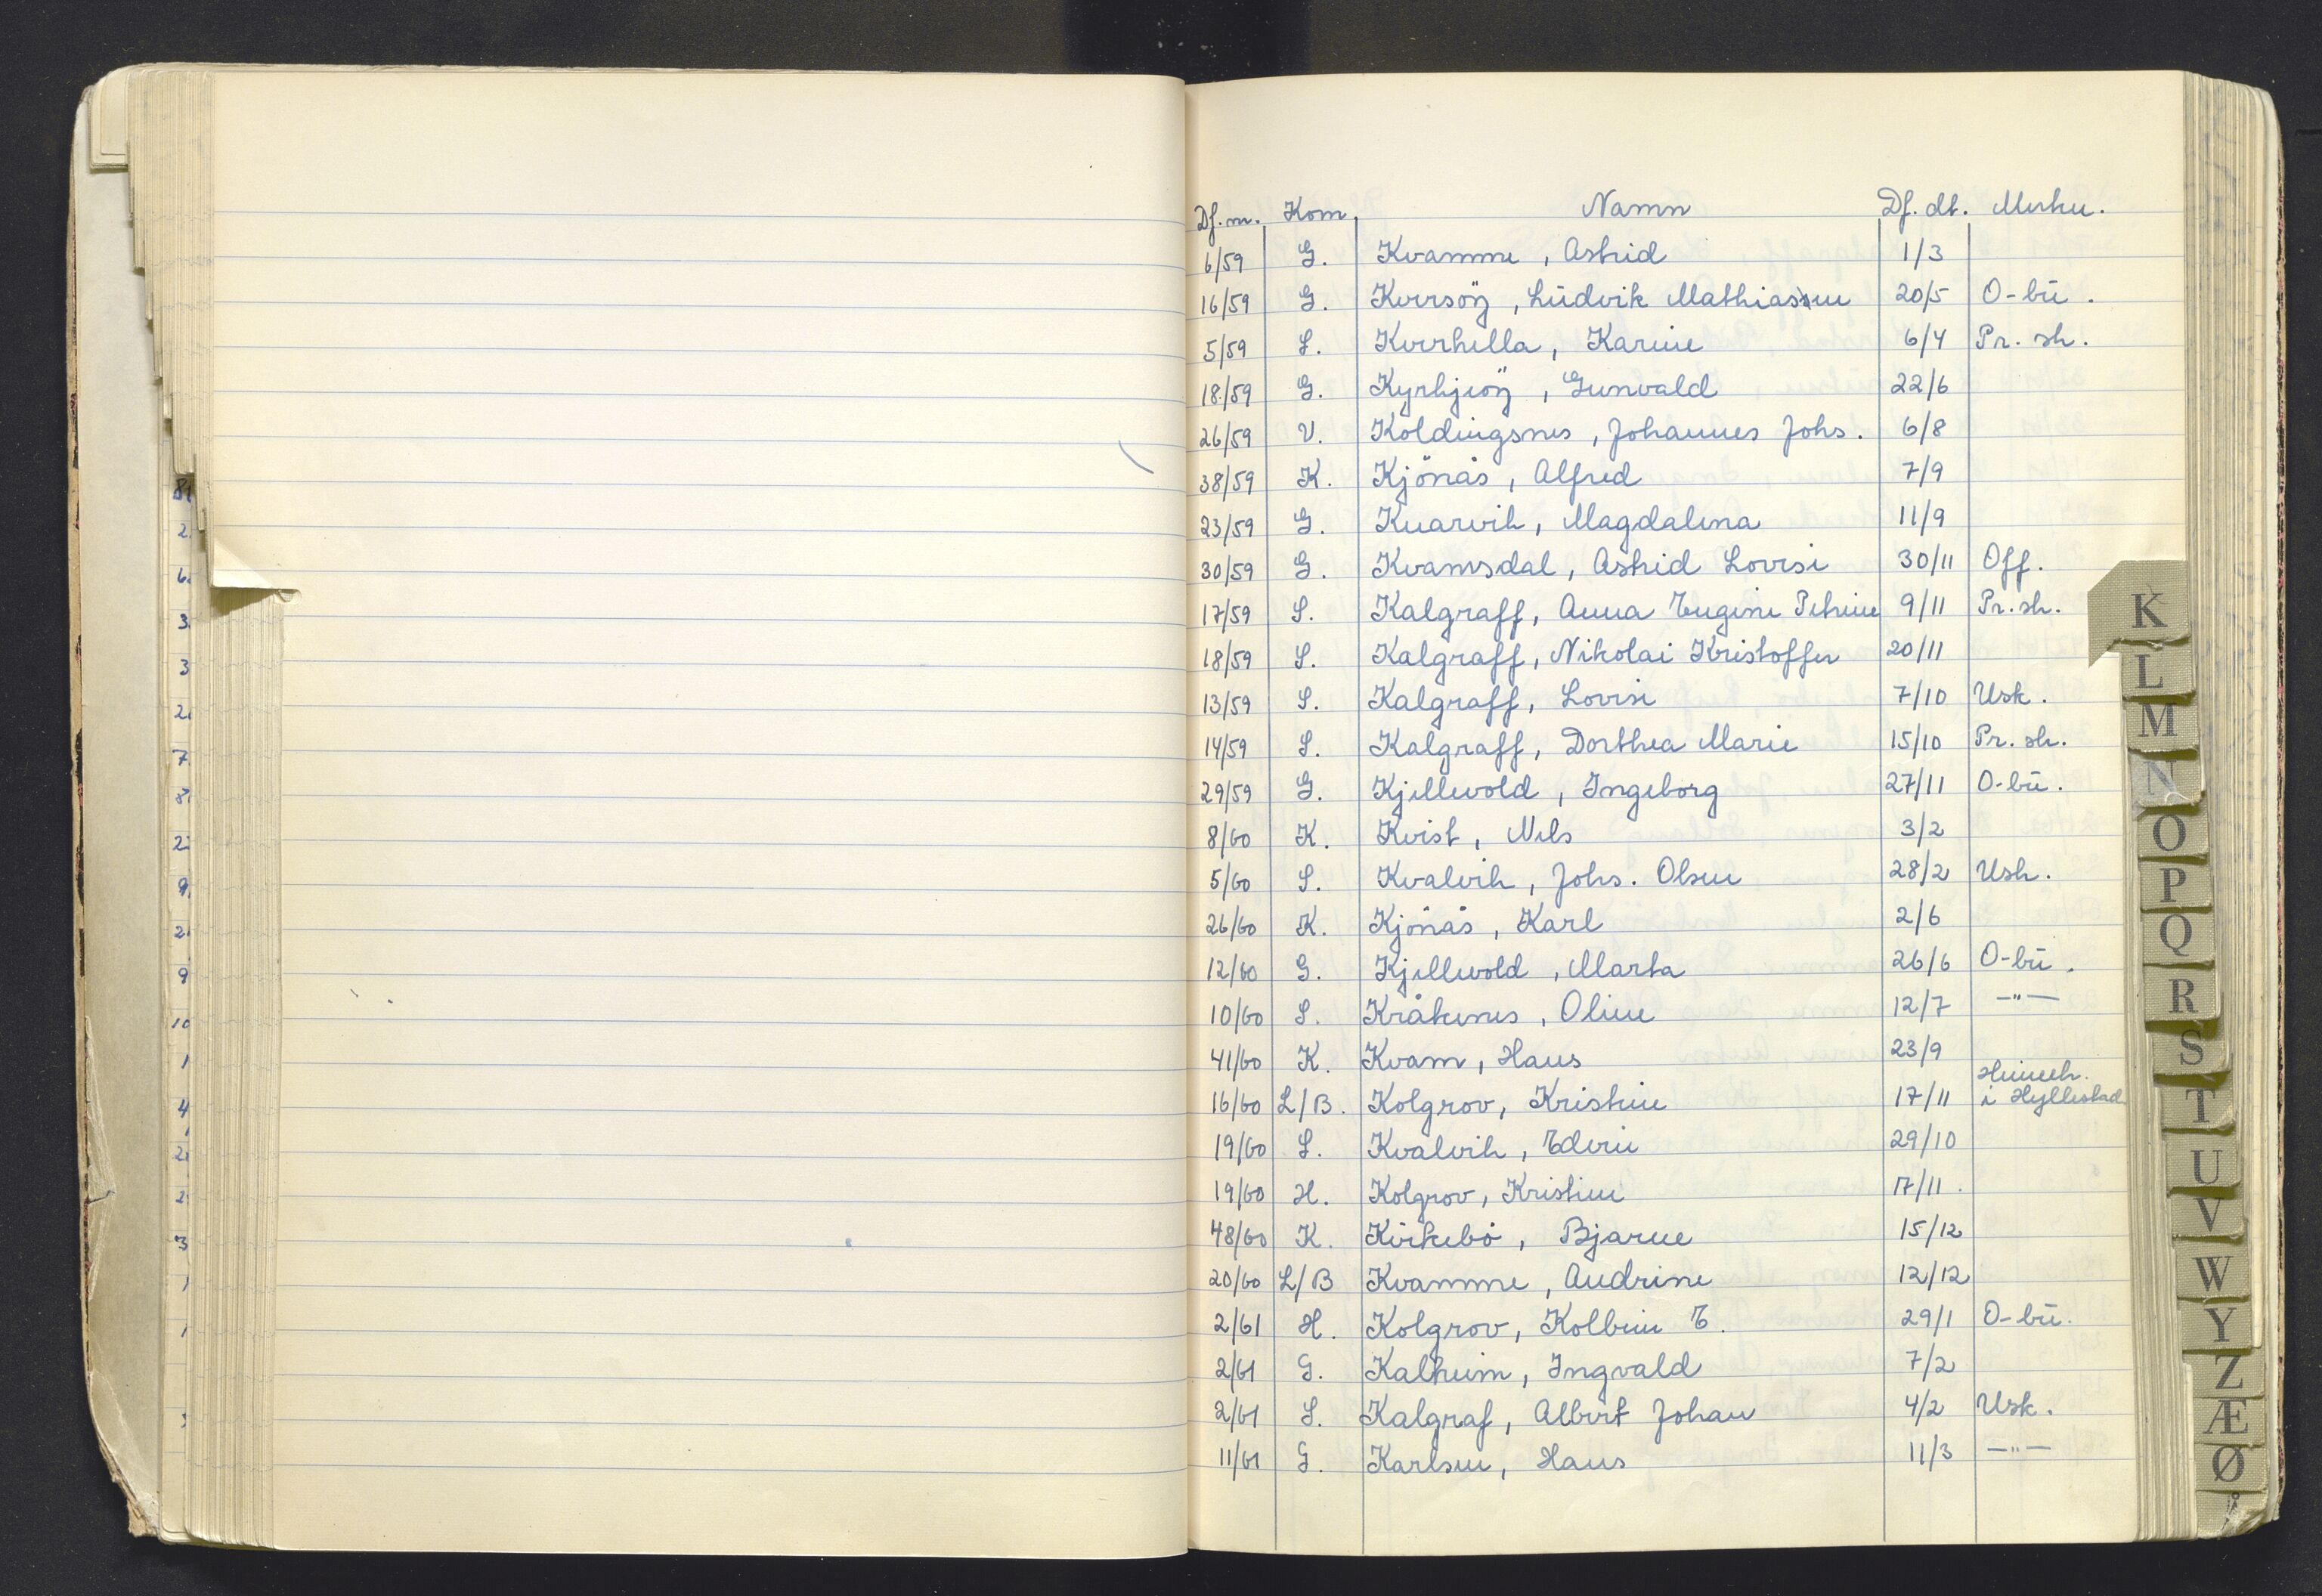 Df. nr. Kom. Namn Df. dt. Merkn.
6/59 G. Kvamme, Astrid 1/3
16/59 G. Kversöy, Ludvik Mathiassen 20/5 O-bu.
5/59 S. Kverhella, Karine 6/4 Pr. sk.
18/59 G. Kyrkjeöy, Gunvald 22/6
26/59 V. Koldingsnes, Johannes Johs. 6/8
38/59 K. Kjönås, Alfred 7/9
23/59 G. Knarvik, Magdalena 11/9
30/59 G. Kvamsdal, Astrid Lovise 30/11 Off.
17/59 S. Kalgraff, Anna Eugine Petrine 9/11 Pr. sk.
18/59 S. Kalgraff, Nikolai Kristoffer 20/11
13/59 S. Kalgraff, Lovise 7/10 Usk.
14/59 S. Kalgraff, Dorthea Marie 15/10 Pr. sk.
29/59 G. Kjellevold, Ingeborg 27/11 O-bu.
8/60 K. Kvist, Nels 3/2
5/60 S. Kvalvik, Johs. Olsen 28/2 Usk.
26/60 K. Kjönås, Karl 2/6
12/60 G. Kjellevold, Marta 26/6 O-bu.
10/60 S. Kråkenes, Oline 12/7 —"—
41/60 K. Kvam, Hans 23/9
16/60 L/B. Kolgrov, Kristine 17/11 i Hyllestad
19/60 S. Kvalvik, Edvin 29/10
19/60 H. Kolgrov, Kristine 17/11.
48/60 K. Kirkebö, Bjarne 15/12
20/60 L/B Kvamme, Andrine 12/12
2/61 H. Kolgrov, Kolbein E. 29/1 O-bu.
2/61 G. Kalheim, Ingvald 7/2
2/61 S. Kalgraf, Albert Johan 4/2 Usk.
11/61 G. Karlsen, Hans 11/3 —"—
K
L
M
N
O
P
Q
R
S
T
U
V
W
Y
Z
Æ
Ø
Å